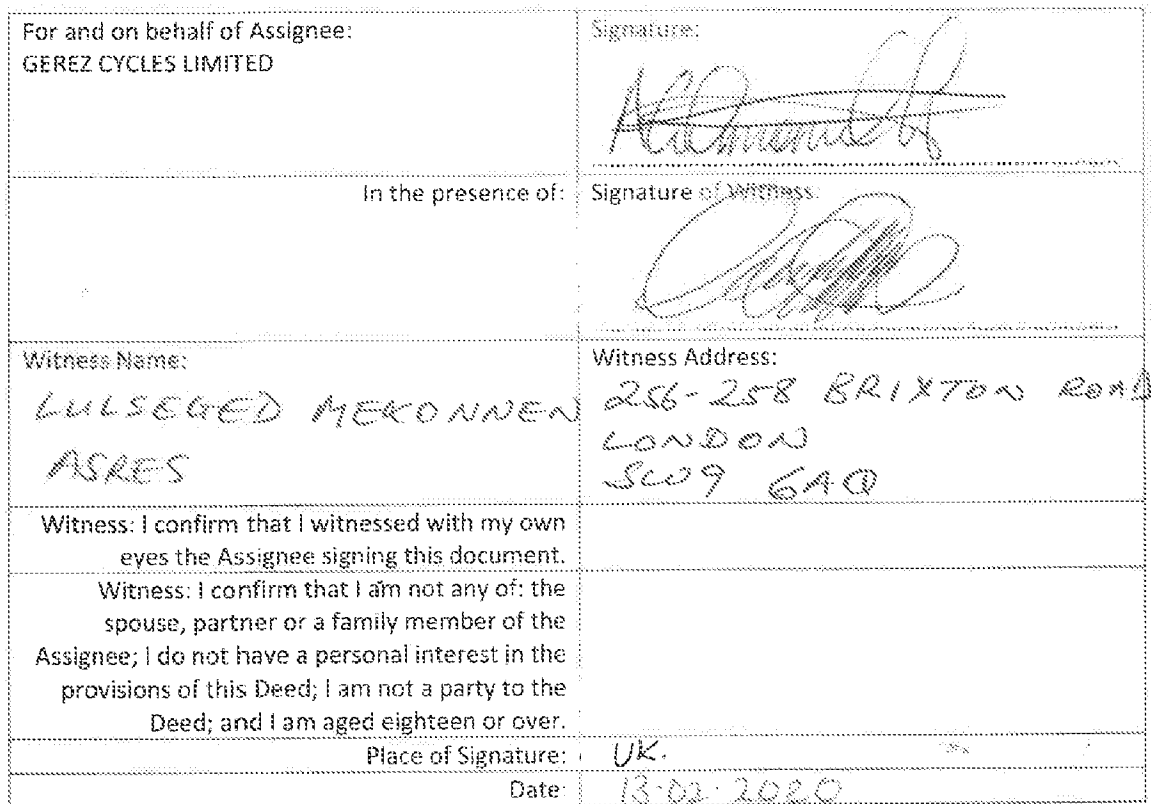 For and on behalf of Assignee:
GEREZ CYCLES LIMITED
Signature:
In the presence of:
Signature of Witness:
Witness Name:
LULSEGED MEKONNEN
ASRES
Witness Address:
256-258 BRIXTON ROAD
LONDON
SW9 6AQ
Witness: I confirm that I witnessed with my own
eyes the Assignee signing this document.
Witness: I confirm that I am not any of: the
spouse, partner or a family member of the
Assignee; I do not have a personal interest in the
provisions of this Deed; I am not a party to the
Deed; and I am aged eighteen or over.
Place of Signature:
UK.
Date:
13.02.2020